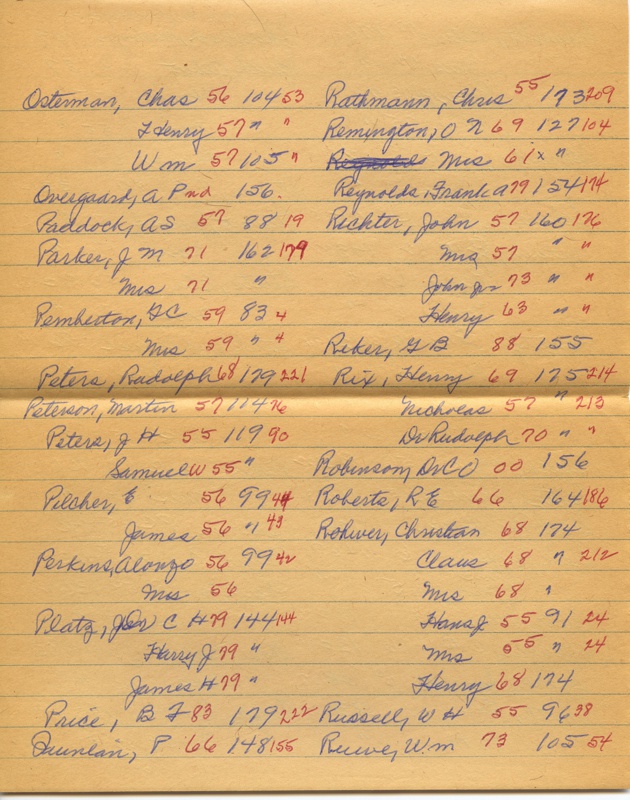 Osterman, Chas 56 104 53
F Henry 57 " "
Wm 57 105 "
Overgaard, A P nd 156.
Paddock, A S 57 88 19
Parker, J M 71 162 179
Mrs 71 "
Pemberton, G C 59 83 4
Mrs 59 " 4
Peters, Rudolph 68 179 221
Peterson, Martin 57 114 76
Peters, J H 55 119 90
Samuel W 55 "
Pilcher, E 56 99 44
James 56 " 43
Perkins, Alonzo 56 99 42
Mrs 56
Platz, Dr C H 79 144 144
Harry J 79 "
James H 79 "
Price, B F 83 179 222
P 66 148 155
Rathmann, Chris 55 173 209
Remington, O N 69 127 104
Reynolds Mrs 61 x "
Reynolds, Frank A 79 154 174
Richter, John 57 160 176
Mrs 57 " "
John jr 73 " "
Henry 63 " "
Reker, G B 88 155
Rix, Henry 69 175 214
Nicholas 57 " 213
Dr Rudolph 70 " "
Robinson, Dr C O 00 156
Roberts, R E 66 164 186
Rohwer, Christian 68 174
Claus 68 " 212
Mrs 68 "
Hans J 55 91 24
Mrs 55 " 24
Henry 68 174
Russell, W H 55 96 38
Ruwe, Wm 73 105 54